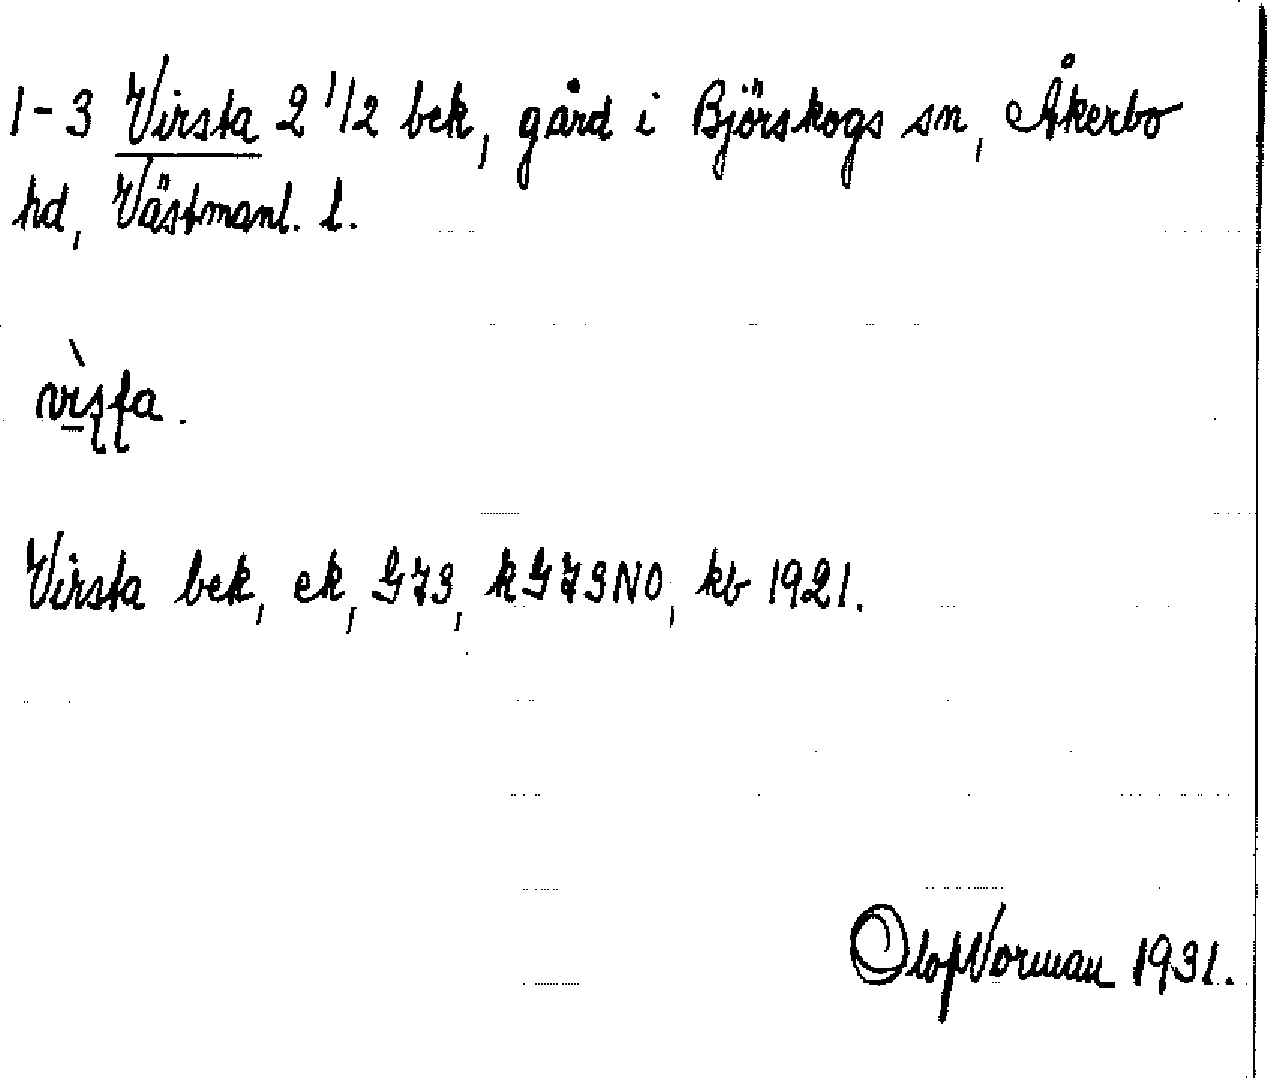 1-3 Virsta 2 1/2 bek, gård i Björskogs sn, Åkerbo
hd, Västmanl. l.
Virsta bek, ek, GJ3, kGJ3NO, kb 1921.
Olof Norman 1931.